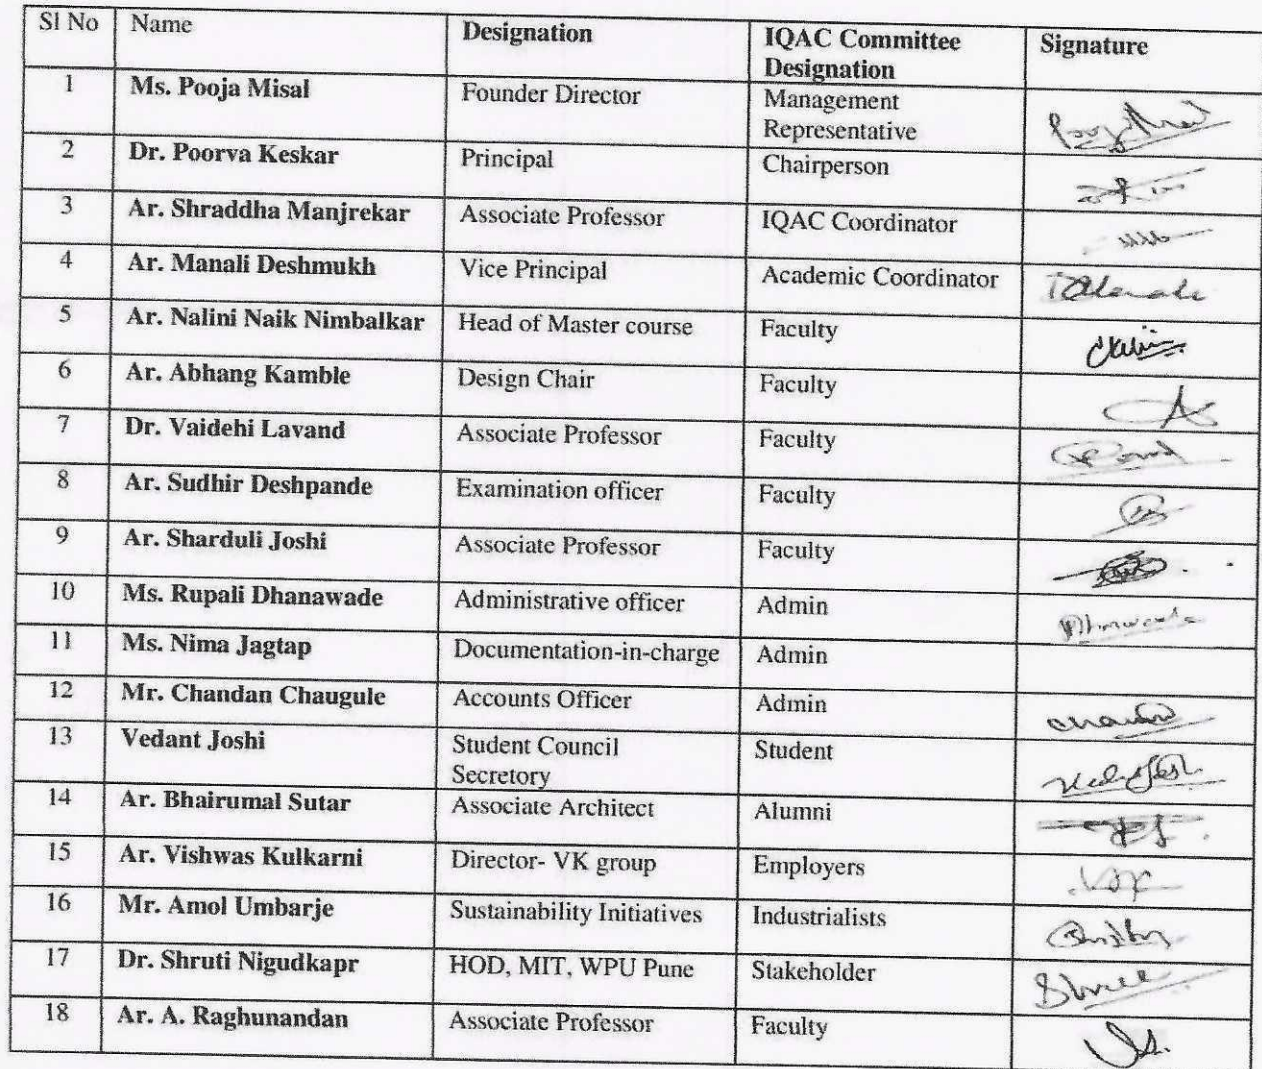 Sl No Name Designation IQAC Committee Signature
Designation
1 Ms. Pooja Misal Founder Director Management
Representative
2 Dr. Poorva Keskar Principal Chairperson
3 Ar. Shraddha Manjrekar Associate Professor IQAC Coordinator
4 Ar. Manali Deshmukh Vice Principal Academic Coordinator
5 Ar. Nalini Naik Nimbalkar Head of Master course Faculty
6 Ar. Abhang Kamble Design Chair Faculty
7 Dr. Vaidehi Lavand Associate Professor Faculty
8 Ar. Sudhir Deshpande Examination officer Faculty
9 Ar. Sharduli Joshi Associate Professor Faculty
10 Ms. Rupali Dhanawade Administrative officer Admin
11 Ms. Nima Jagtap Documentation-in-charge Admin
12 Mr. Chandan Chaugule Accounts Officer Admin
13 Vedant Joshi Student Council Student
Secretory
14 Ar. Bhairumal Sutar Associate Architect Alumni
15 Ar. Vishwas Kulkarni Director- VK group Employers
16 Mr. Amol Umbarje Sustainability Initiatives Industrialists
17 Dr. Shruti Nigudkapr HOD, MIT, WPU Pune Stakeholder
18 Ar. A. Raghunandan Associate Professor Faculty